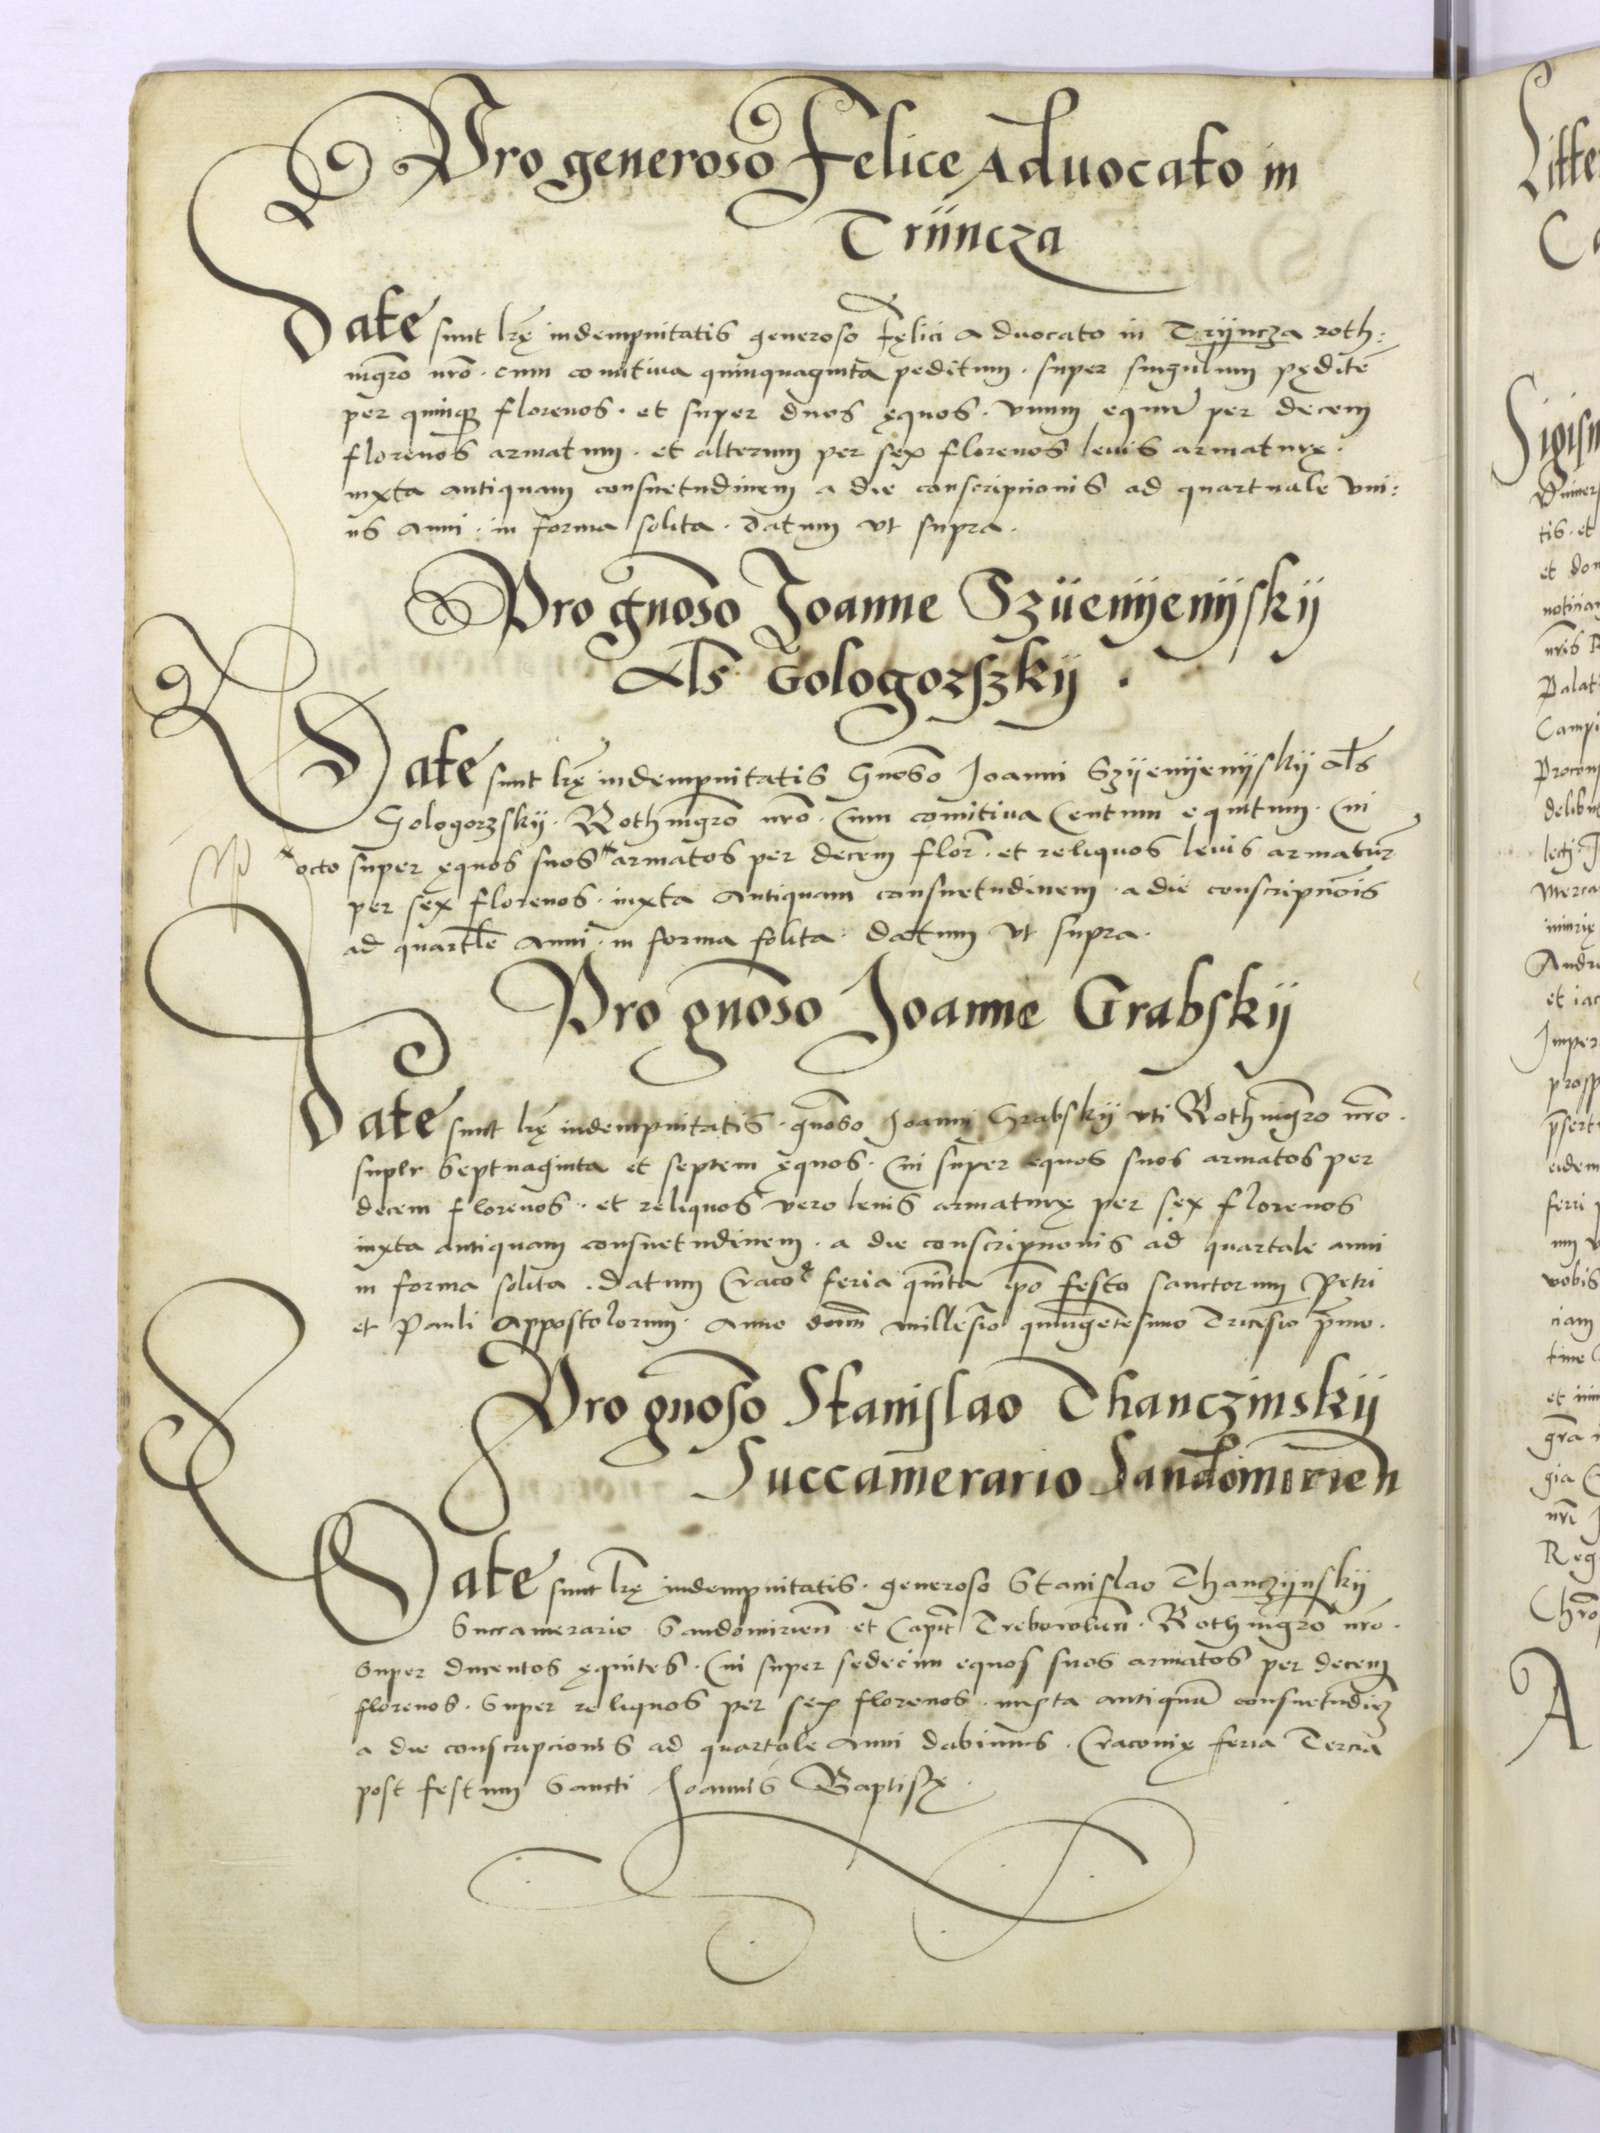 Pro generoso Felice Aduocato in
Trijncza
Date sunt lrę indempnitatis generoso Fęlici Aduocato in Trijncza roth:
mgrō nrō · cum comitiua quinquaginta peditum · super singulum pęditē
per quinqꝫ florenos · et super duos ęquos · vnum equū per decem
florenos armatum · et alterum per sex florenos leuis armaturę ·
iuxta antiquam consuetudinem a die conscripcionis ad quartuale vni:
us anni · in forma solita · datum vt supra ·
Pro gnōso Joanne Szüenÿenÿskÿ
als Gologorszkij ·
Date sunt lrę indempnitatis Gnōso Joanni Szÿenÿenÿskÿ als
Gologorzskÿ · Rothmgrō nrō · Cum comitiua Centum equitum · Cui
octo super ęquos suos armatos per decem flor · et reliquos leuis armatur
per sex florenos · iuxta Antiquam consuetudinem · a die conscripnōis
ad quartle anni · in forma solita · datum vt supra ·
Pro gnōso Joanne Grabskÿ
Date sunt lrę indempnitatis · gnōso Joanni Grabskÿ vti Rothmgrō nrō ·
super Septuaginta et septem ęquos · Cui super equos suos armatos per
decem florenos · et reliquos vero leuis armaturę per sex florenos
iuxta antiquam consuetudinem · a die conscripnonis ad quartale anni
in forma solita · datum Craco feria quīnta po festo sanctorum Petri
et Pauli Appostolorum · Anno dnīm millesīo quingētesimo Tricesīo prīmo ·
Pro gnōso Stanislao Thanczinskij
Succamerario Sandomirien
Date sunt lrę indempnitatis · generoso Stanislao Thanczÿnskÿ
Succamerario Sandomirien̄ et Capit Trebowlien̄ · Rothmgrō nrō ·
Super ducentos ęquites · Cui super sedecim equos suos armatos per decem
florenos · Super reliquos per sex florenos · iuxta antiquā consuetudiēꝫ
a die conscripcionis ad quartale Anni dabimus · Cracouię feria Tercia
post festum Sancti Joannis Baptistę